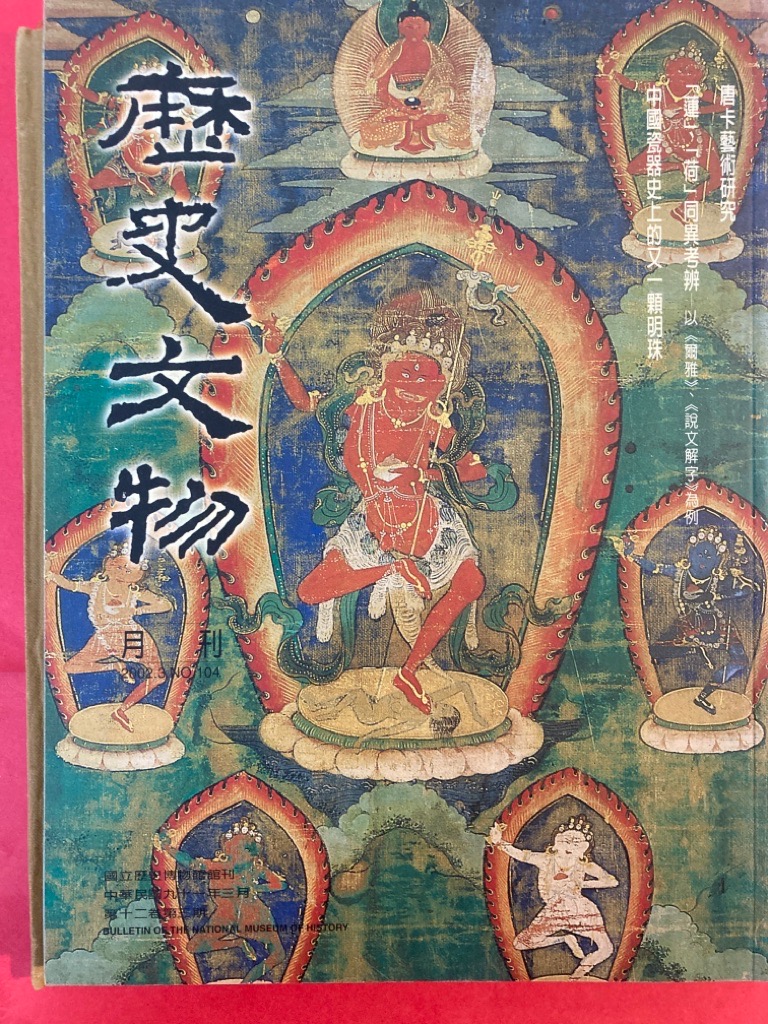 歷史文物
月刊
2002.3.NO.104
唐卡藝術研究
「蓮」、「荷」同異考辨—以《爾雅》、《說文解字》為例
中國瓷器史上的又一顆明珠
國立歷史博物館館刊
中華民國九十一年三月
第十二卷第三期
BULLETIN OF THE NATIONAL MUSEUM OF HISTORY